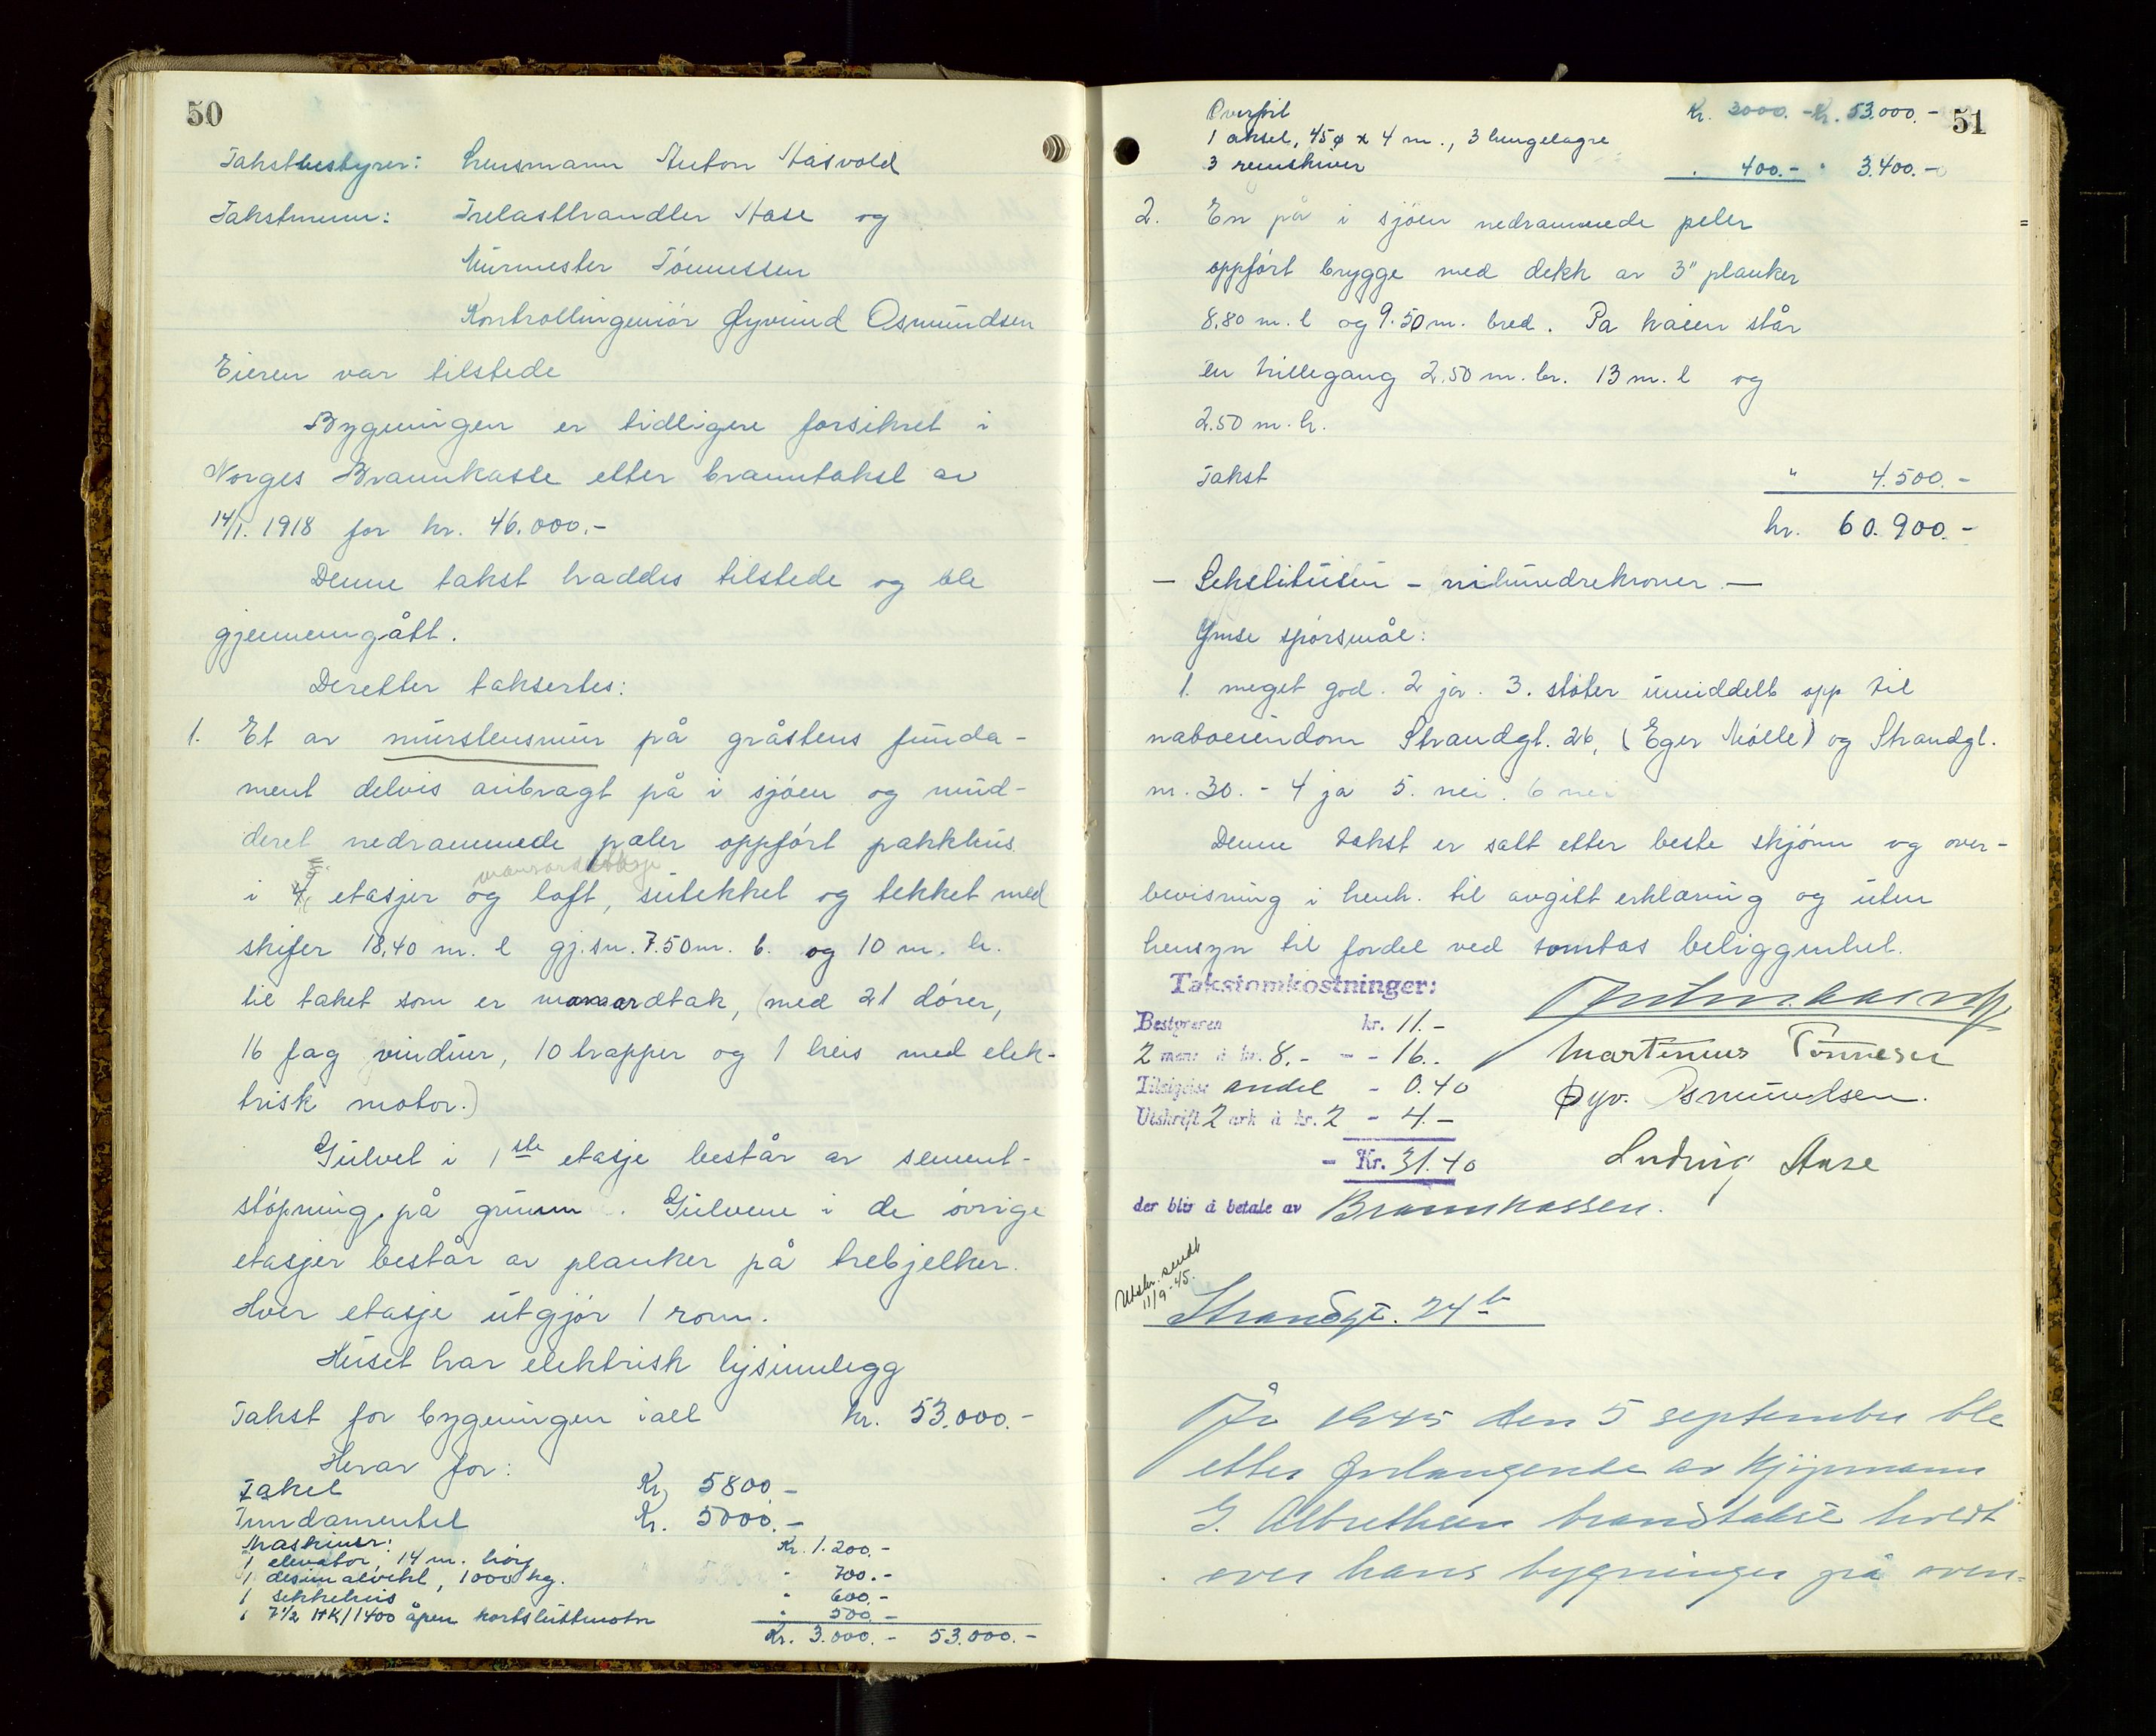 50
Takstbestyrer: Lensmann Anton HaSvold
Takstmenn: Trelasthandler Aase og
Murmester Tönnessen
Kontrollingeniör Øyvind Osmundsen
Eieren var tilstede
Bygningen er tidligere forsikret i
Norges Brannkasse etter branntakst av
14/1. 1918 for kr. 46.000.-
Denne takst haddes tilstede og ble
gjennemgått.
Deretter taksertes:
1. Et av murstensmur på gråstens funda-
ment delvis anbragt på i sjöen og mud-
deret nedrammede pæler oppfört pakkhus
mansardetasje
i 4 etasjer og loft, sutekket og tekket med
skifer 18,40 m. l gj.sn. 7.50m. b. og 10 m. h.
til taket som er mansardtak, (med 21 dörer,
16 fag vinduer, 10 trapper og 1 heis med elek-
trisk motor.)
Gulvet i 1ste etasje består av sement-
stöpning på grunn. Gulvene i de övrige
etasjer består av planker på trebjelker.
Hver etasje utgjör 1 rom.
Huset har elektrisk lysinnlegg
Takst for bygningen iall kr. 53.000.-
Herav for:
Taket Kr. 5800.-
Fundamentet Kr. 5000.-
Maskiner:
1 elevator, 14 m. höy Kr. 1.200.-
1 desimalvekt, 1000 kg. " 700.-
1 sekkeheis " 600.-
1 7 1/2 HK/1400 åpen kortsluttmotor " 500.-
Kr. 3.000.- 53.000.-
51
Overfört Kr. 3000.- Kr. 53.000.-
1 aksel, 45ø x 4 m., 3 hengelagre
3 remskiver " 400.- " 3.400.-
2. En på i sjöen nedrammede peler
oppfört brygge med dekk av 3" planker
8,80 m. l og 9.50 m. bred. Pa kaien står
en hillegang 2.50 m. br. 13 m. l og
2.50 m. h.
Takst " 4.500.-
kr. 60.900.-
- Sekstitusen - nihundrekroner -
Ymse spörsmål:
1. meget god. 2 ja. 3. støter umiddelb opp til
naboeiendom Strandgt. 26, (Eger Mölle) og Strandgt.
nr. 30. - 4 ja 5. nei. 6 nei
Denne takst er satt etter beste skjönn og over-
bevisning i henh. til avgitt erklæring og uten
hensyn til fordel ved tomtas beliggenhet.
Takstomkostninger:
Bestyreren kr. 11.-
2 menn à kr. 8.- - - 16.-
Martinius Tönnesen
Tilsigelse andel - 0.40
Øyv. Osmundsen.
Utskrift 2 ark à kr. 2 - 4.-
- Kr. 31.40
Ludvig Aase
der blir å betale av Brannkassen.
Utskr. sendt
11/9-45.
Strandgt. 24 b
År 1945 den 5 september ble
etter forlangende av kjöpmann
G. Albrethsen brandtakst holdt
over hans bygninger på oven-